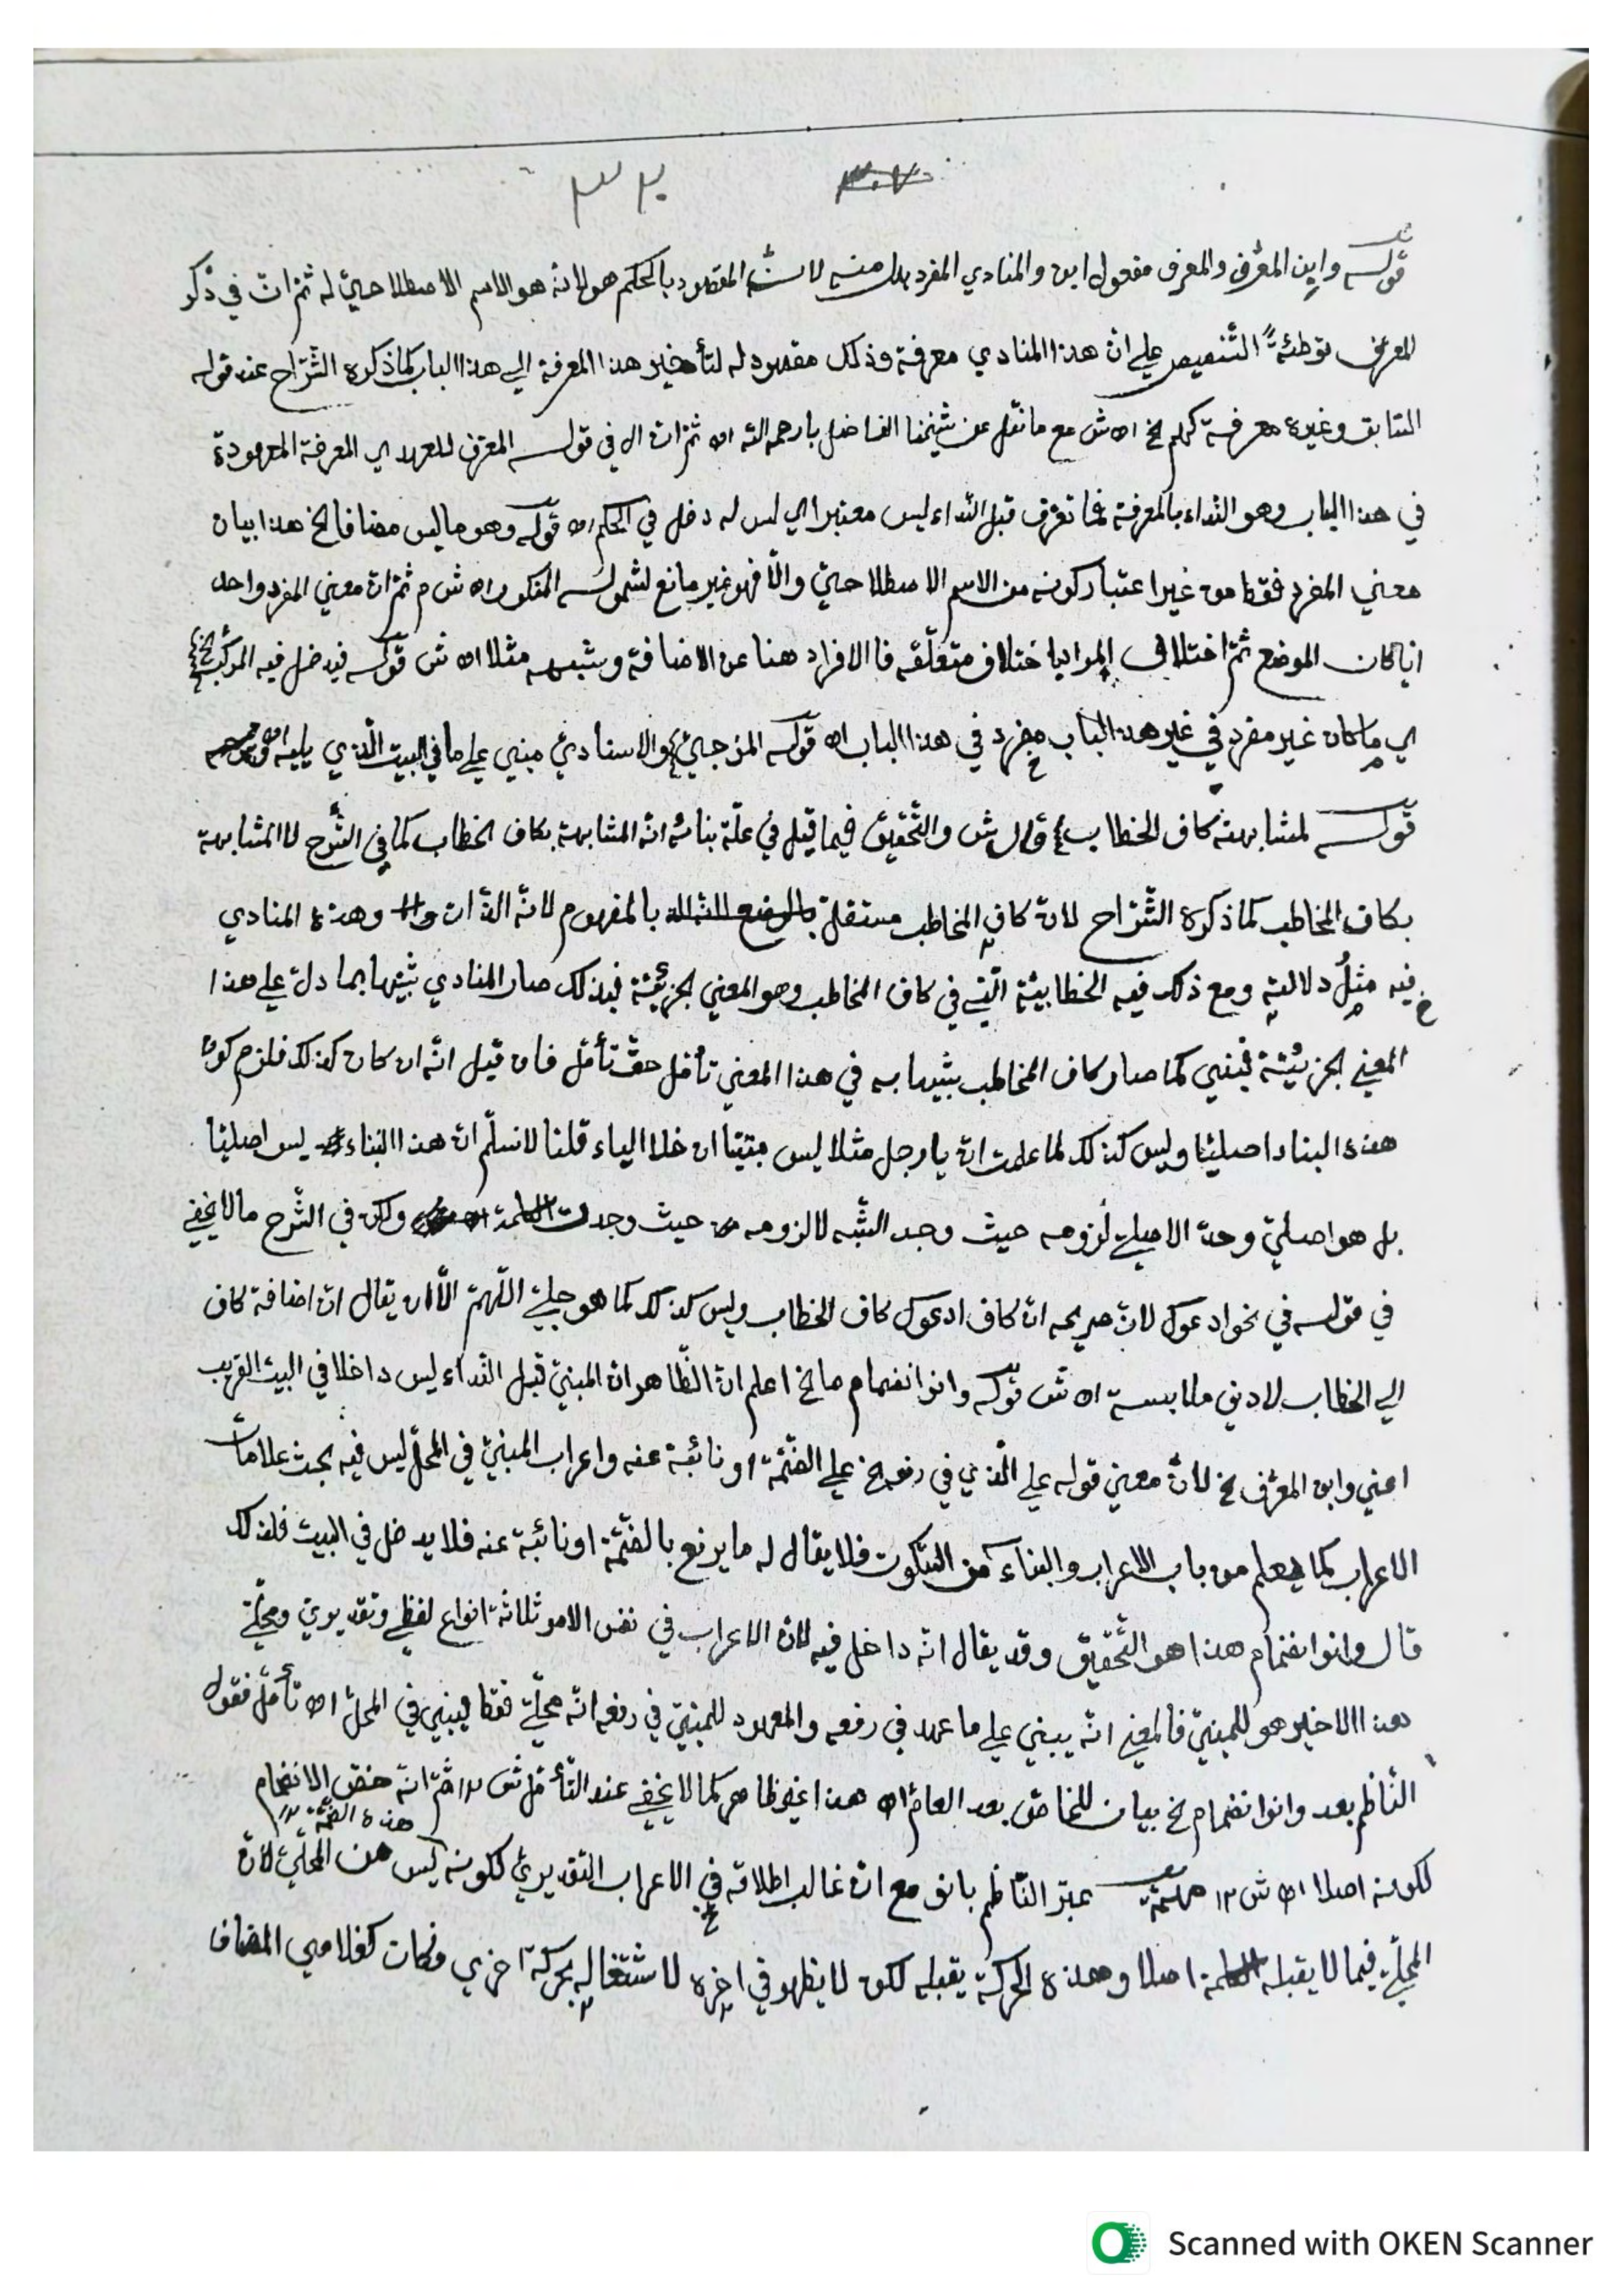 ٣٢
٣٠٧
قوله وابن المعرّف والمعرف مفعول ابن والمنادي المفرد بدل منه لانّه المقصود بالحكم هو لانه هو الاسم الاصطلاحيّ له ثم انّ في ذكر
المعرف توطئةً التنصيص علي انّ هذا المنادي معرفة وذلك مقصود له لتأخير هذا المعرفة الي هذا الباب كما ذكره الشرّاح عند قوله
السّابق وغيره معرفة كهم الخ اه ش مع ما نقل عن شيخنا الفاضل يا رحمه الله اه ثم انّ ال في قوله المعرّف للعهد اي المعرفة المعهودة
في هذا الباب وهو النّداء بالمعرفة فما تعرّف قبل النّداء ليس معتبرا اي ليس له دخل في الحكم اه قوله وهو ما ليس مضافا الخ هذا بيان
معني المفرد فقط من غير اعتبار كونه من الاسم الاصطلاحيّ والّا فهو غير مانع لشموله المنكور اه ش م ثم انّ معني المفرد واحد
ايّا كان الموضع ثم اختلاف المراد باختلاف متعلّقه فالافراد هنا عن الاضافة وشبهه مثلا اه ش قوله فيدخل فيه المركّب الخ
اي ما كان غير مفرد في غير هذا الباب مفرد في هذا الباب اه قوله المزجيّ والاسناديّ مبني علي ما في البيت الّذي يليه اه
قوله لمشابهته كاف الخطاب قال ش والتّحقيق فيما قيل في علّة بنائه انّه المشابهة بكاف الخطاب كما في الشّرح لا المشابهة
بكاف المخاطب كما ذكره الشرّاح لانّ كاف المخاطب مستقلّ بالمفهوم لانّه الذّات وهذه المنادي
فيه مثل دلالته ومع ذلك فيه الخطابيّة الّتي في كاف المخاطب وهو المعني الجزئيّة فبذلك صار المنادي شبيها بما دلّ علي هذا
المعني الجزئيّة فبني كما صار كاف المخاطب شبيها به في هذا المعني تأمّل حقّ تأمّل فان قيل انّه ان كان كذلك فلزم كون
هذه البناء اصليّا وليس كذلك لما علمت انّ يا رجل مثلا ليس مبنيّا ان خلا الياء قلنا لا نسلّم انّ هذا البناء ليس اصليّا
بل هو اصليّ وحدّ الاصليّ لزومه حيث وجد الشّبه لا لزومه حيث وجدت الكلمة ولكن في الشّرح ما لا يخفي
في قوله في نحو ادعوك لانّ صريحه انّ كاف ادعوك كاف الخطاب وليس كذلك كما هو جليّ اللّهمّ الّا ان يقال انّ اضافة كاف
الي الخطاب لادني ملابسة اه ش قوله وانو انضمام ما الخ اعلم انّ الظّاهر انّ المبنيّ قبل النّداء ليس داخلا في البيت القريب
اعني وابن المعرّف الخ لانّ معني قوله علي الّذي في رفعه الخ علي الضّمّة او نائبة عنه واعراب المبنيّ في المحلّ ليس فيه بحث علامات
الاعراب كما يعلم من باب الاعراب والبناء من السّكون فلا يقال له ما يرفع بالضّمّة او نائبة عنه فلا يدخل في البيت فلذلك
قال وانو انضمام هذا هو التّحقيق وقد يقال انّه داخل فيه لانّ الاعراب في نفس الامر ثلاثة انواع لفظي وتقديري ومحلّي
هذا الاخير هو للمبنيّ فالمعني انّه يبني علي ما عهد في رفعه والمعهود للمبنيّ في رفعه انّه محلّيّ فقط فيبني في المحلّ اه تأمّل فقول
النّاظم بعد وانو انضمام الخ بيان للخاصّ بعد العامّ اه هذا غير ظاهر كما لا يخفي عند التأمّل ش ١٢ ثم انّه خصّ الانضمام
هذه الضمّة ١٢
لكونه اصلا اه ش ١٢ عبّر النّاظم بانو مع انّ غالب اطلاقه في الاعراب التقديريّ لكونه ليس من المحلّيّ لانّ
المحلّيّ فيما لا يقبله الكلمة اصلا وهذه الحركة يقبله لكن لا يظهر في اخره لاشتغاله بحركة اخري وكانت كغلامي المضاف
Scanned with OKEN Scanner